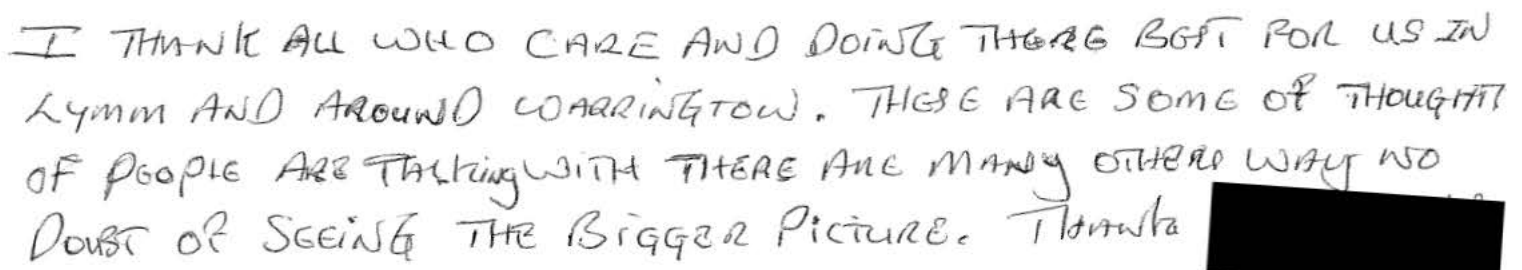 I THANK ALL WHO CARE AND DOING THERE BEST FOR US IN
LYMM AND AROUND WARRINGTON. THESE ARE SOME OF THOUGHTS
OF PEOPLE ARE TALKING WITH THERE ARE MANY OTHERS WAY NO
DOUBT OF SEEING THE BIGGER PICTURE. THANKS